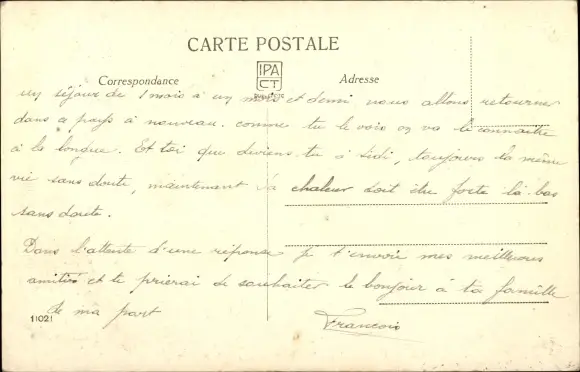 CARTE POSTALE
IPA
CT
Correspondance
Adresse
un séjour de 1 mois à un mois et demi nous allons retourner
dans ce pays à nouveau. comme tu le vois on va le connaitre
à la longue. Et toi que deviens tu à Sidi, toujours la même
vie sans doute, maintenant la chaleur doit être forte là-bas
sans doute.
Dans l'attente d'une réponse je t'envoie mes meilleures
amitiés et te prierai de souhaiter le bonjour à ta famille
de ma part
François
11021